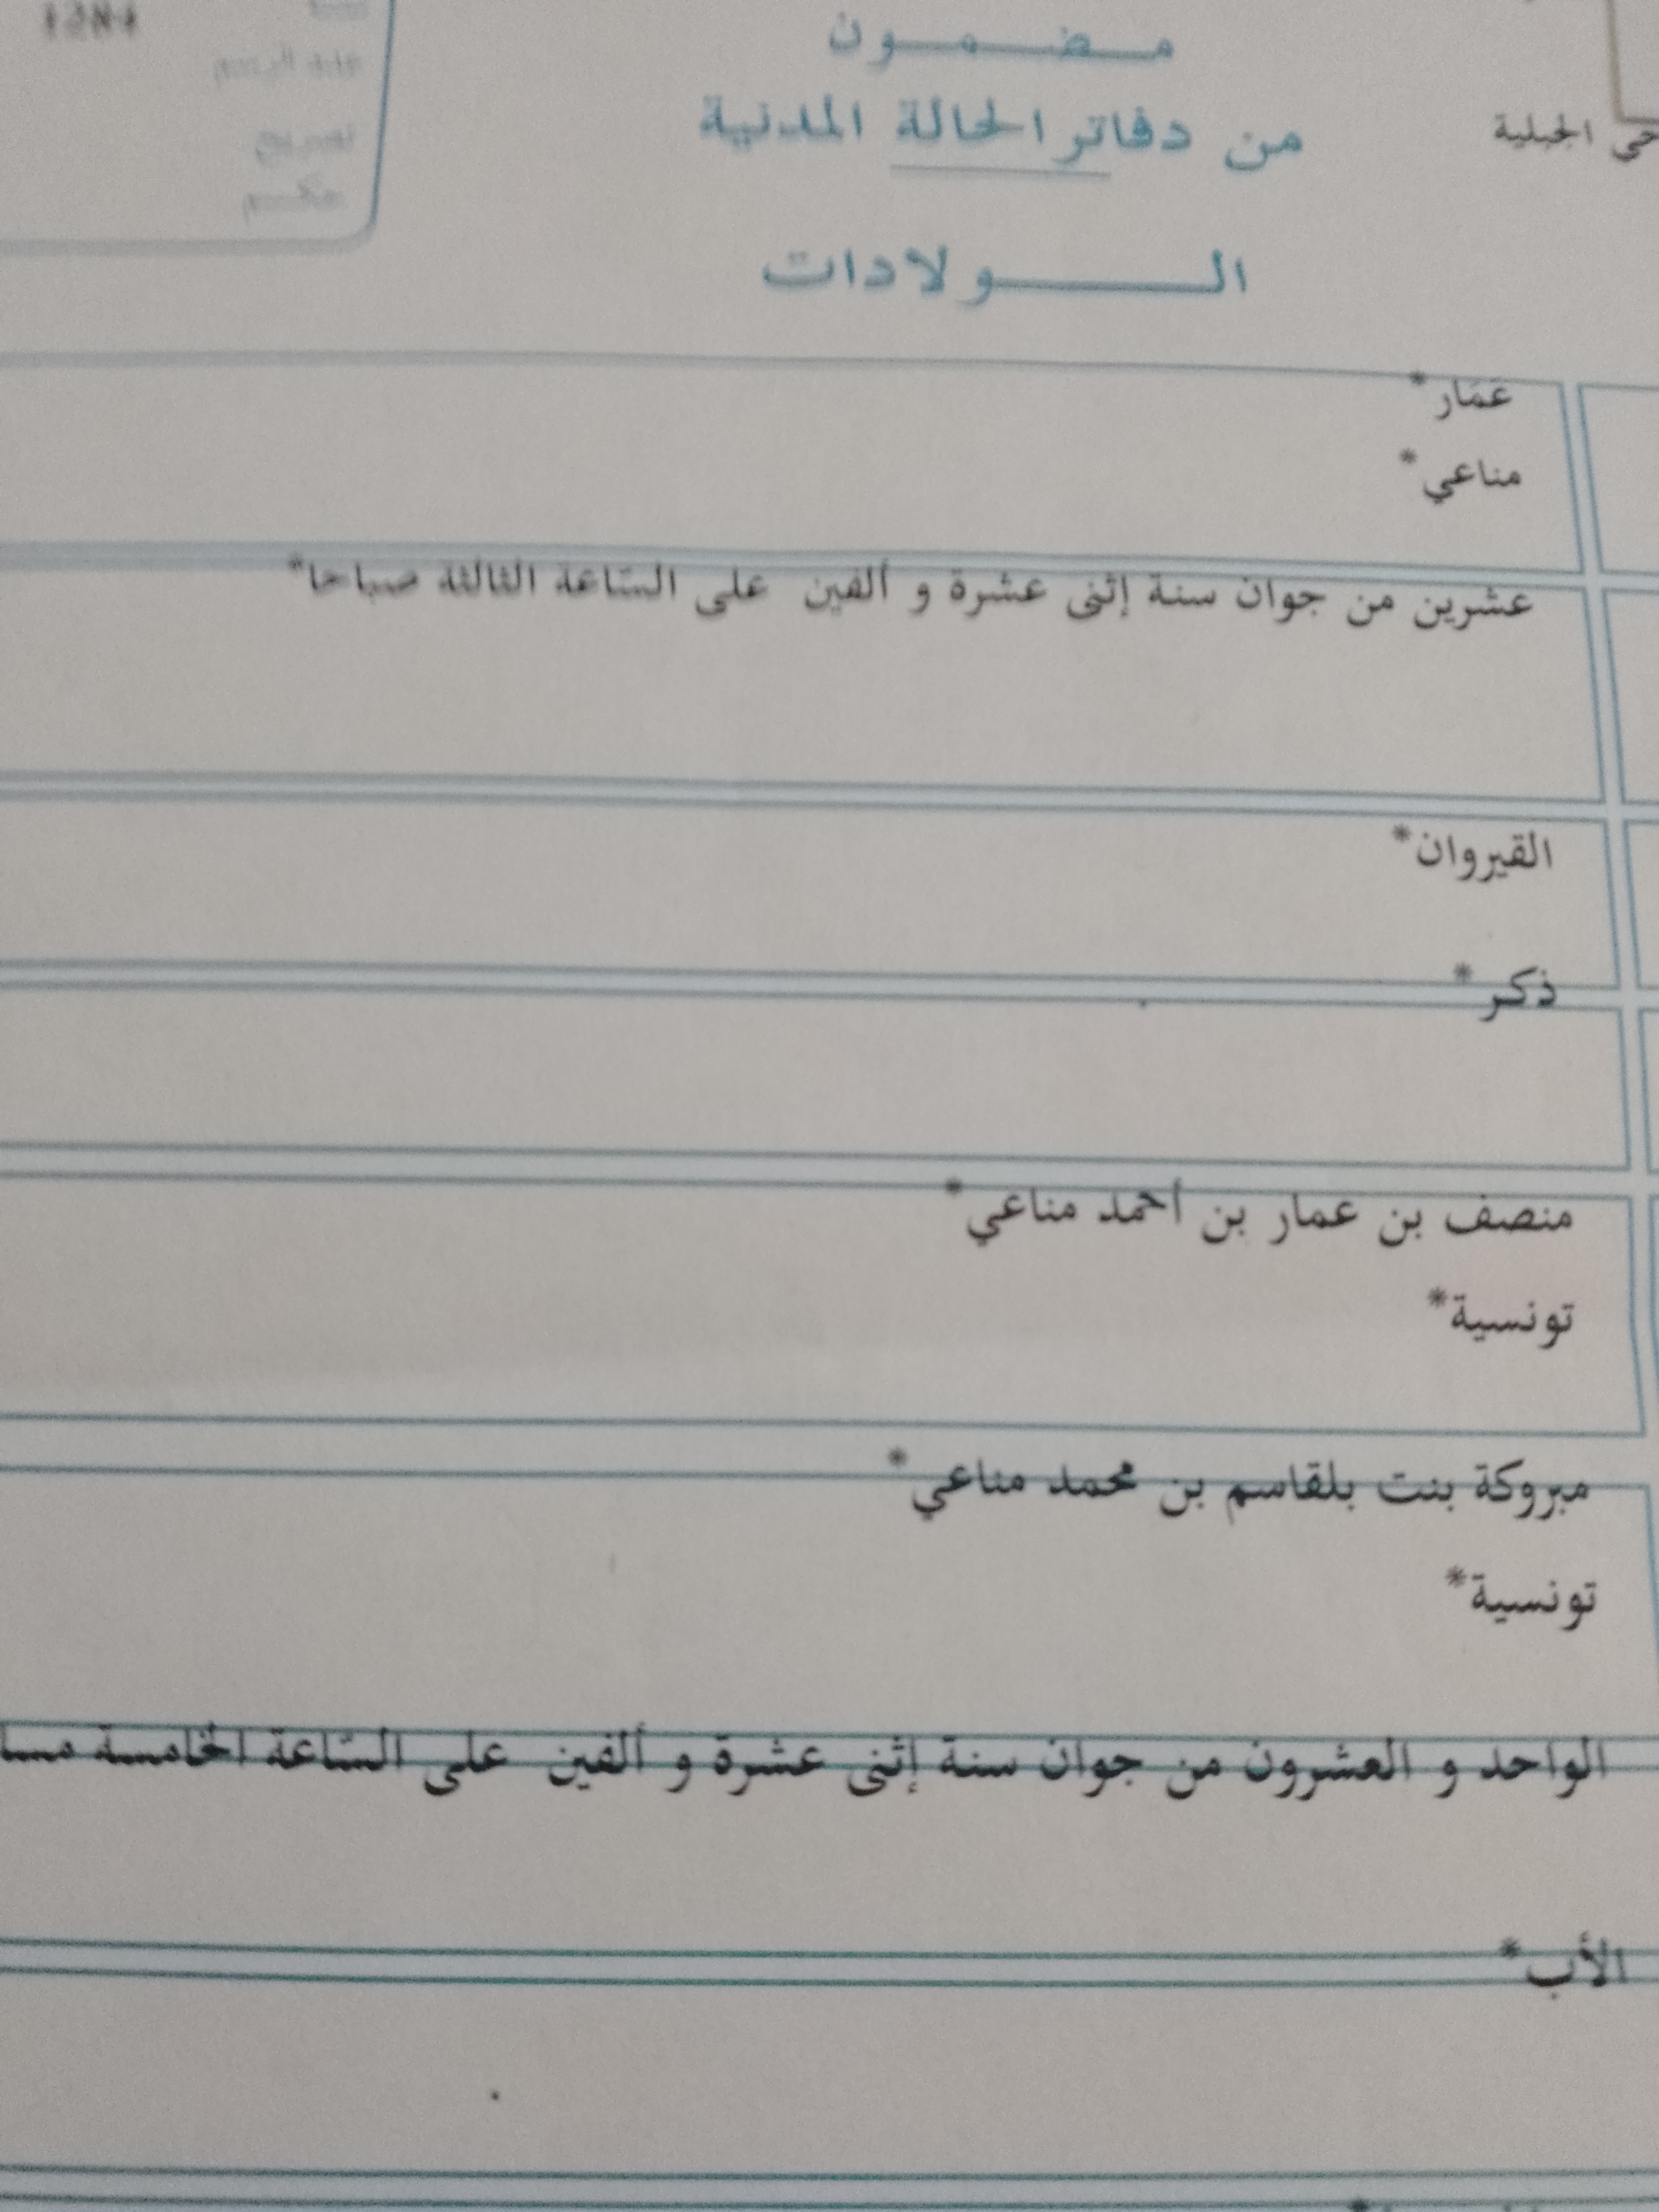 مضمون
من دفاتر الحالة المدنية
الجبلية
الولادات
عمار*
مناعي*
عشرين من جوان سنة إثنى عشرة و ألفين على الساعة الثالثة صباحا*
القيروان*
ذكر*
منصف بن عمار بن أحمد مناعي*
تونسية*
مبروكة بنت بلقاسم بن محمد مناعي*
تونسية*
الواحد و العشرون من جوان سنة إثنى عشرة و ألفين على الساعة الخامسة مسا
الأب*